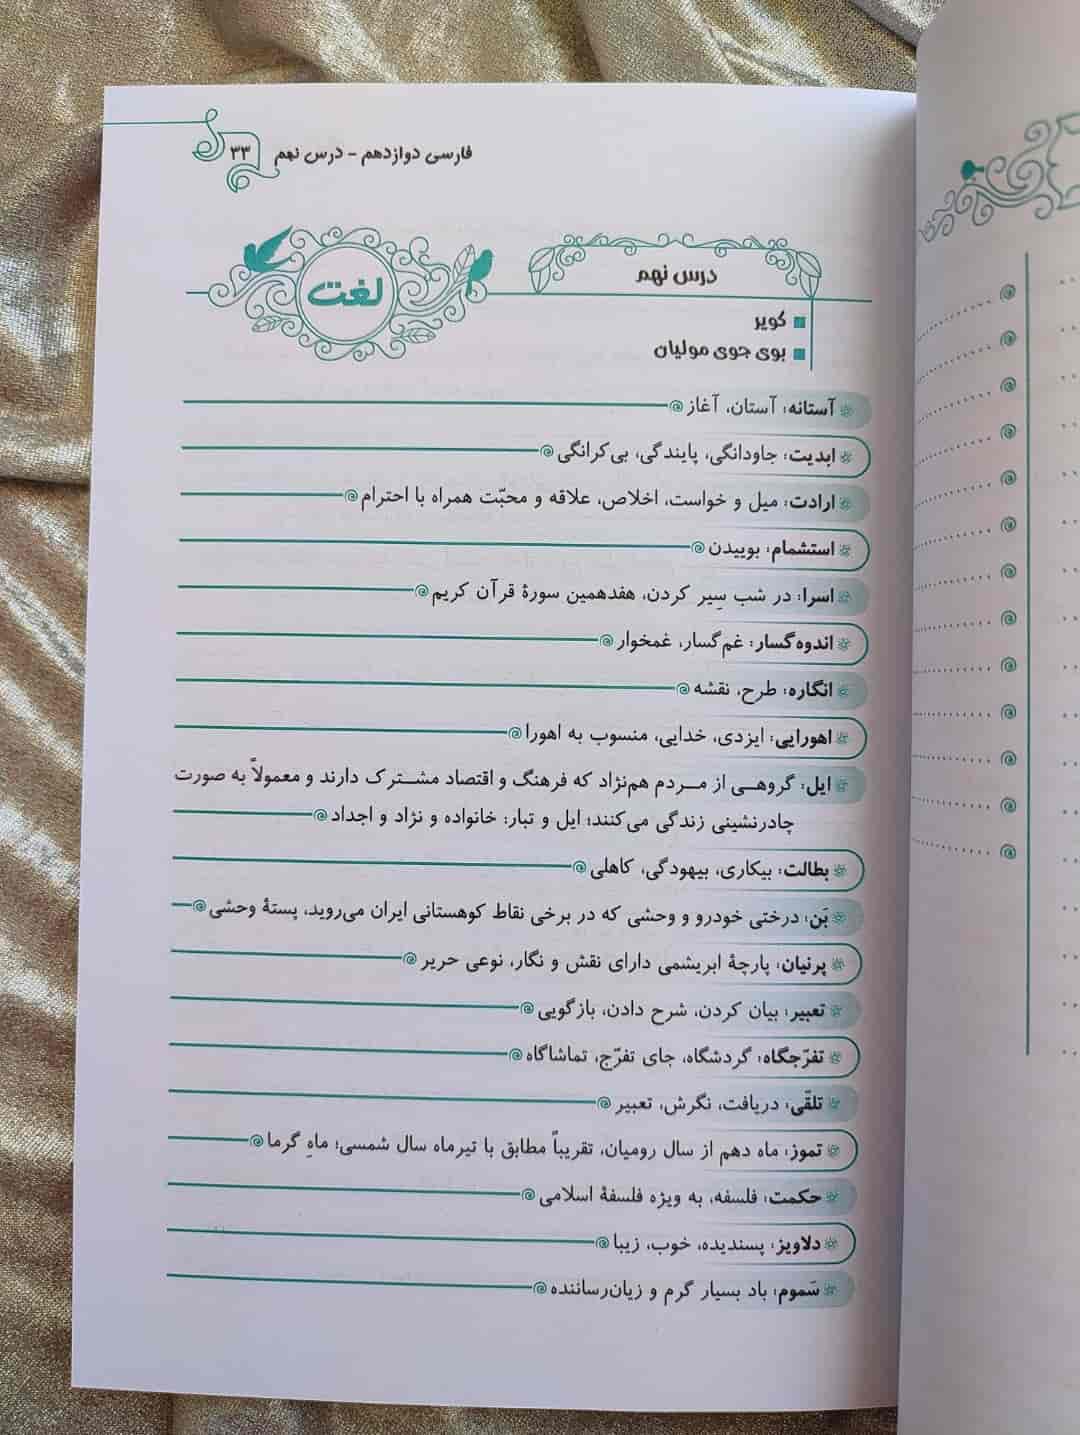 فارسی دوازدهم - درس نهم ۳۳
درس نهم
لغت
کویر
بوی جوی مولیان
آستانه: آستان، آغاز
ابدیت: جاودانگی، پایندگی، بی‌کرانگی
ارادت: میل و خواست، اخلاص، علاقه و محبّت همراه با احترام
استشمام: بوییدن
اسرا: در شب سِیر کردن، هفدهمین سورهٔ قرآن کریم
اندوه‌گسار: غم‌گسار، غمخوار
انگاره: طرح، نقشه
اهورایی: ایزدی، خدایی، منسوب به اهورا
ایل: گروهی از مردم هم‌نژاد که فرهنگ و اقتصاد مشترک دارند و معمولاً به صورت
چادرنشینی زندگی می‌کنند؛ ایل و تبار: خانواده و نژاد و اجداد
بطالت: بیکاری، بیهودگی، کاهلی
بَن: درختی خودرو و وحشی که در برخی نقاط کوهستانی ایران می‌روید، پستهٔ وحشی
پرنیان: پارچهٔ ابریشمی دارای نقش و نگار، نوعی حریر
تعبیر: بیان کردن، شرح دادن، بازگویی
تفرّجگاه: گردشگاه، جای تفرّج، تماشاگاه
تلقّی: دریافت، نگرش، تعبیر
تموز: ماه دهم از سال رومیان، تقریباً مطابق با تیرماه سال شمسی؛ ماهِ گرما
حکمت: فلسفه، به ویژه فلسفهٔ اسلامی
دلاویز: پسندیده، خوب، زیبا
سَموم: باد بسیار گرم و زیان‌رساننده